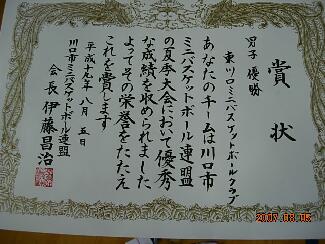 賞状
男子 優勝
東川口ミニバスケットボールクラブ
あなたのチームは川口市
ミニバスケットボール連盟
の夏季大会において優秀
な成績を収められました
よってその栄誉をたたえ
これを賞します
平成十九年八月五日
川口市ミニバスケットボール連盟
会長 伊藤昌治
2007.08.05